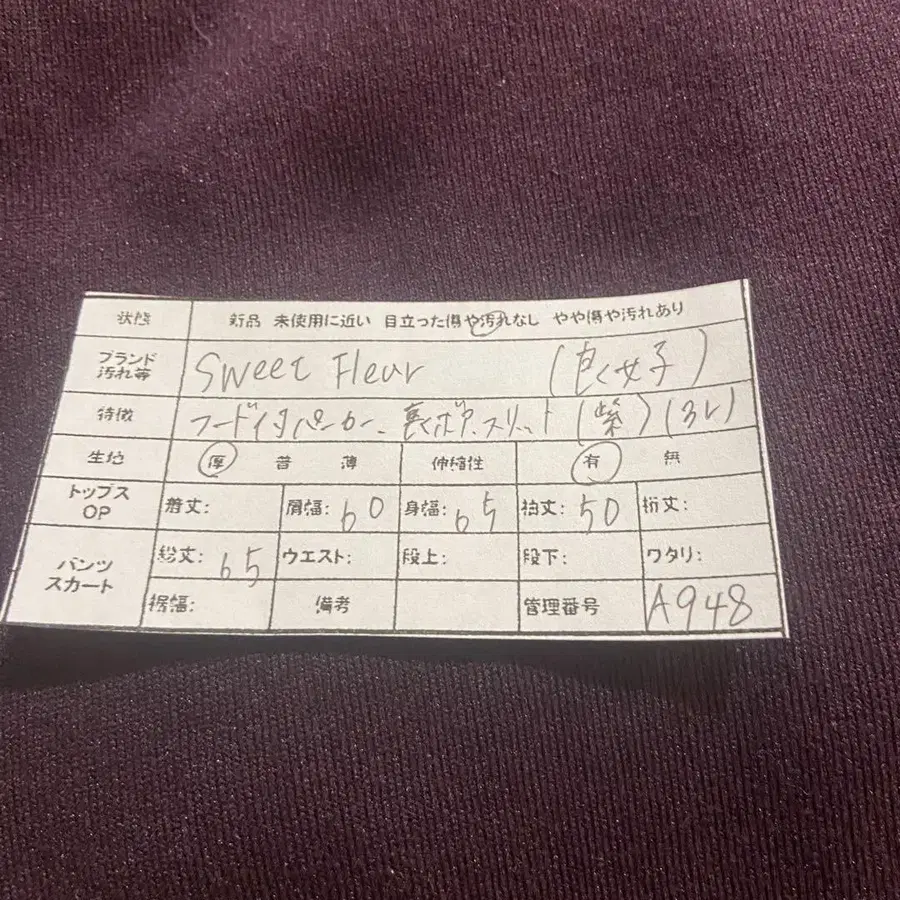 状態 新品 未使用に近い 目立った傷や汚れなし やや傷や汚れあり
ブランド 汚れ等 Sweet Fleur (色く女子)
特徴 フード付パーカー、裏ボア、スリット (紫) (3L)
生地 厚 普 薄 伸縮性 有 無
トップス OP 着丈: 肩幅: 60 身幅: 65 袖丈: 50 裄丈:
パンツ スカート 総丈: 65 ウエスト: 段上: 段下: ワタリ:
裾幅: 備考 管理番号 A948